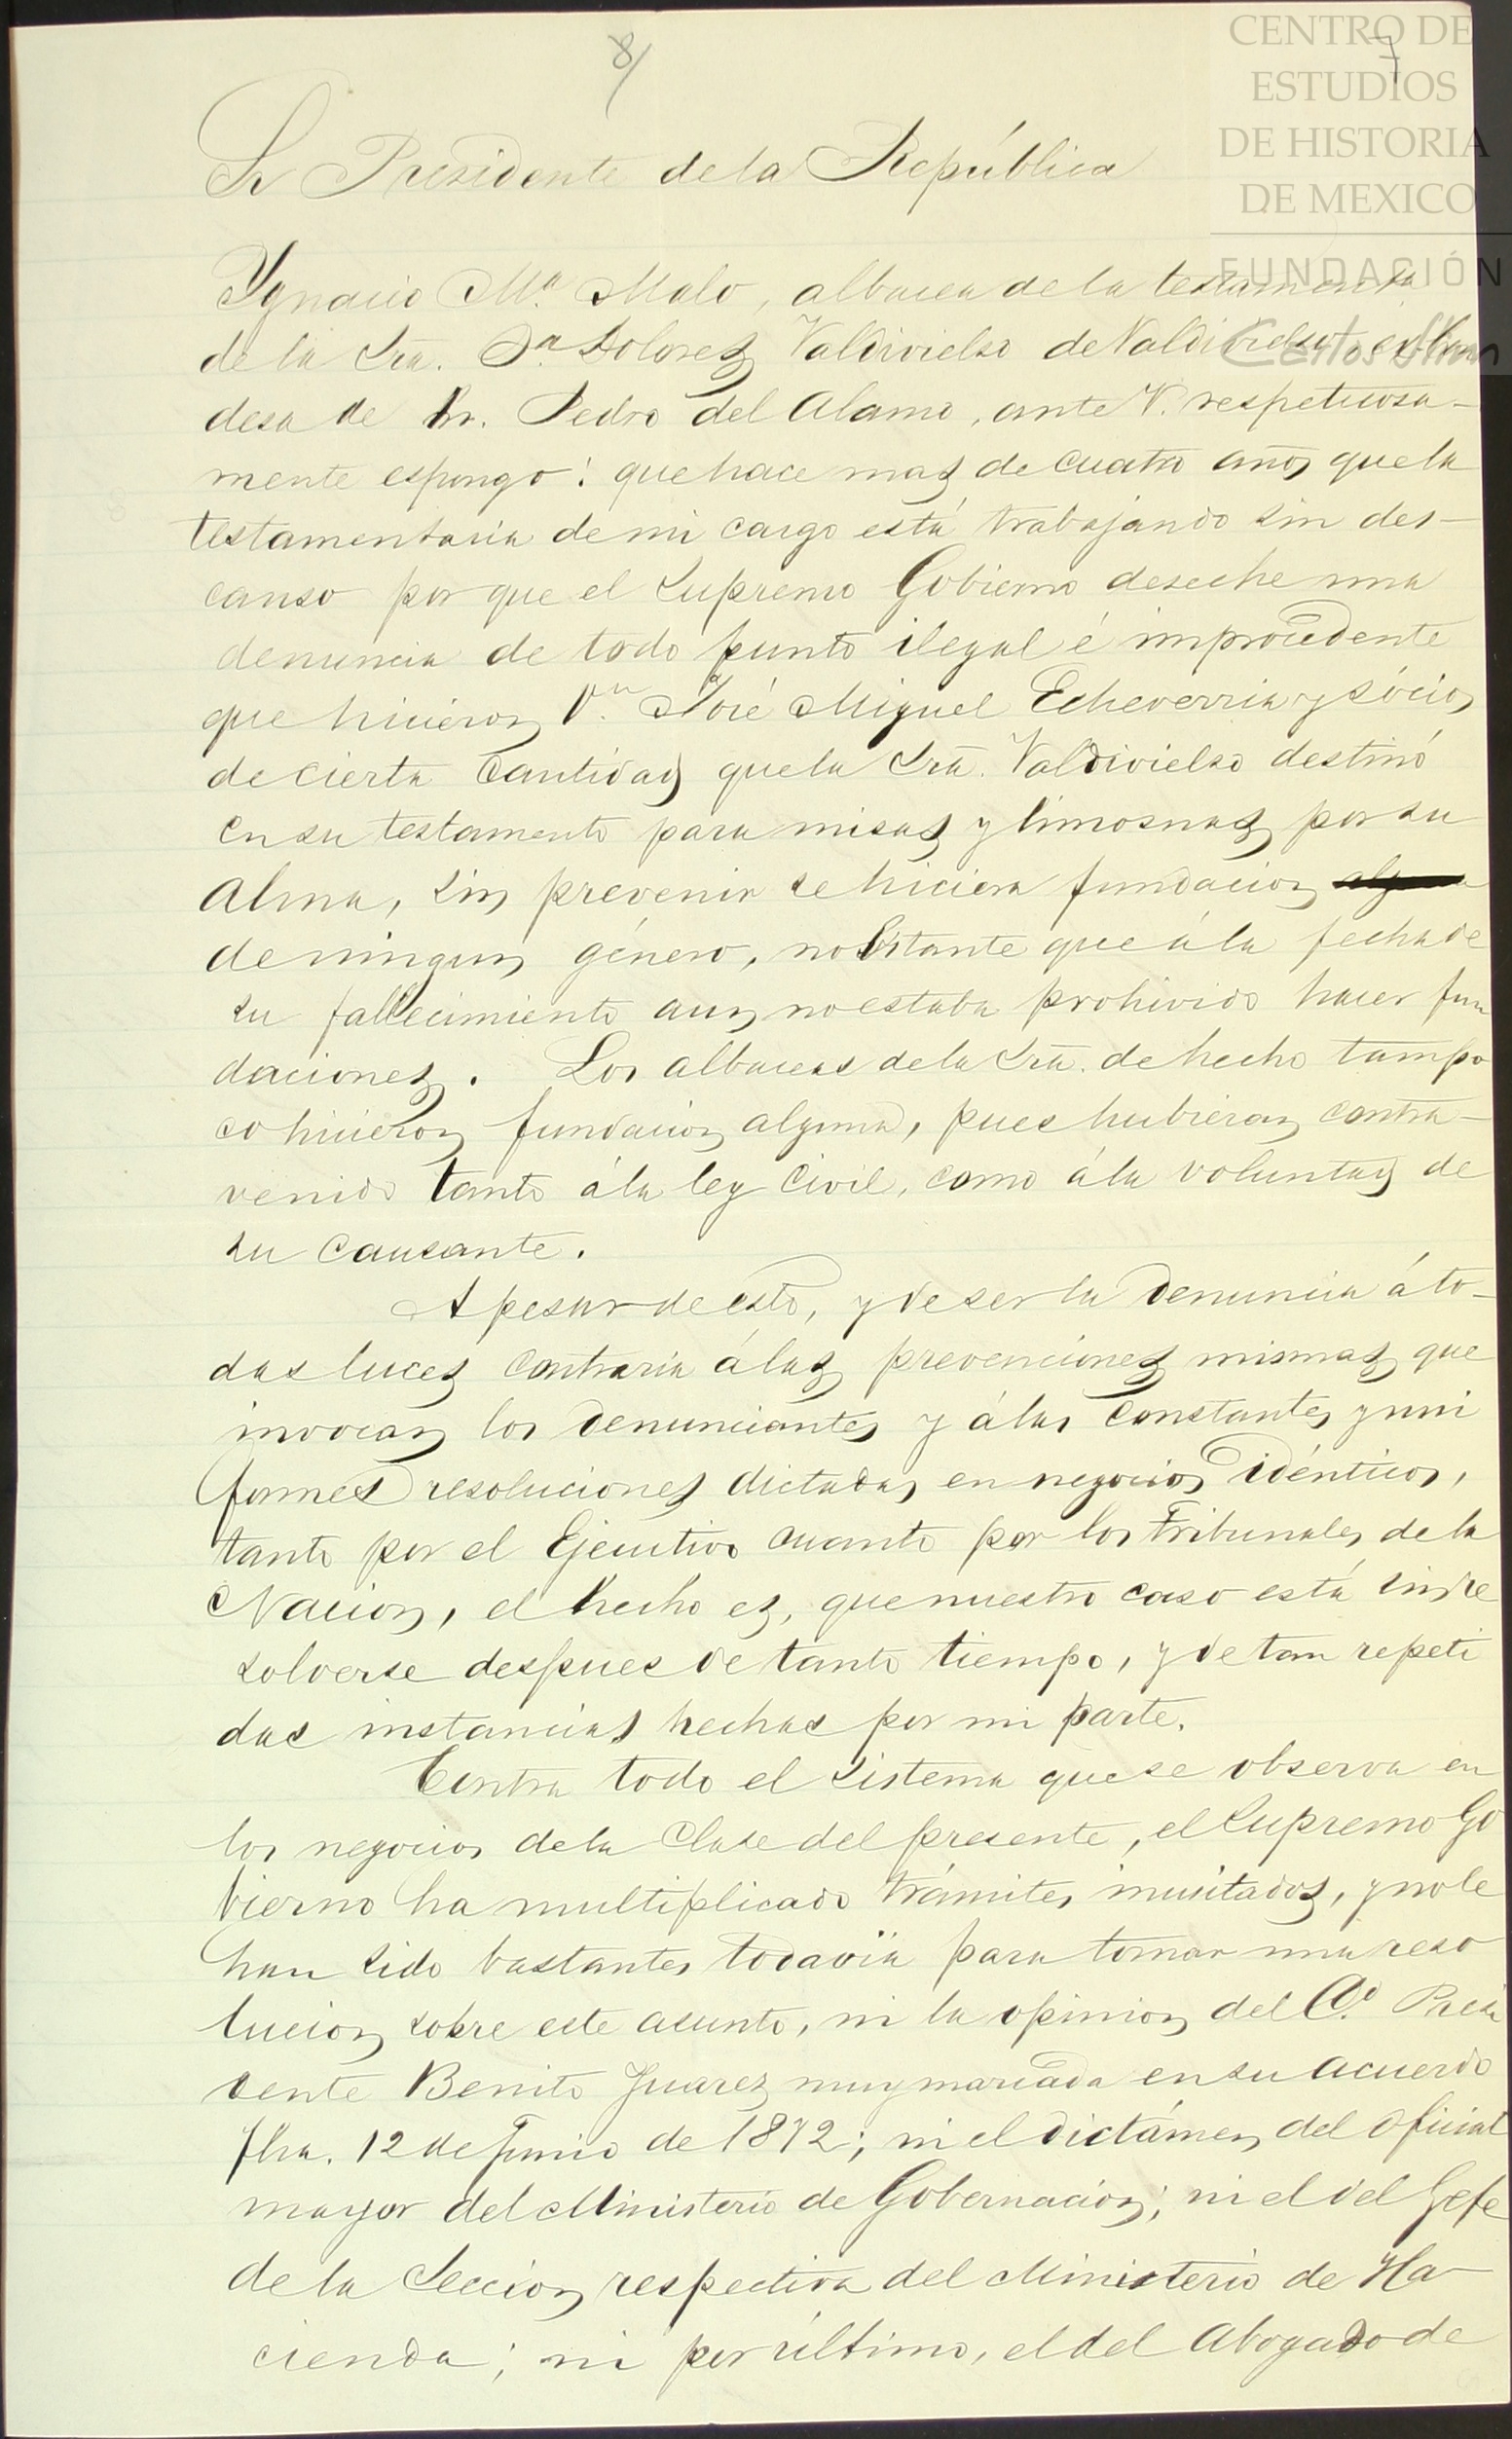 8/
7
CENTRO DE
ESTUDIOS
DE HISTORIA
DE MEXICO
FUNDACIÓN
Carlos Slim
Sr Presidente de la República
Ygnacio Mª Malo, albacea de la testamentaria
de la Sra. Dª Dolores Valdivielso de Valdivielso
desa de Sn. Pedro del Alamo, ante V. respetuosa-
mente espongo: que hace mas de cuatro años que la
testamentaría de mi cargo está trabajando sin des-
canso por que el Supremo Gobierno deseche una
denuncia de todo punto ilegal é improcedente
que hicieron Dn José Miguel Echeverria y sócios
de cierta cantidad que la Sra. Valdivielso destinó
en su testamento para misas y limosnas por su
Alma, sin prevenir se hiciera fundacion
de ningun género, no obstante que á la fecha de
su fallecimiento aun no estaba prohivido hacer fun
daciones. Los albaceas de la Sra. de hecho tampo
co hicieron fundacion alguna, pues hubieran contra-
venido tanto á la ley civil, como á la voluntad de
su causante.
A pesar de esto, y de ser la denuncia á to-
das luces contraria á las prevenciones mismas que
invocan los denunciantes y á las constantes y uni
formes resoluciones dictadas en negocios idénticos,
tanto por el Ejecutivo cuanto por los Tribunales de la
Nacion, el hecho es, que nuestro caso está sin re
solverse despues de tanto tiempo, y de tan repeti
das instancias hechas por mi parte.
Contra todo el sistema que se observa en
los negocios de la clase del presente, el Supremo Go
bierno ha multiplicado trámites inusitados, y no le
han sido bastantes todavia para tomar una reso
lucion sobre este asunto, ni la opinion del C. Presi
dente Benito Juarez muy marcada en su acuerdo
fha. 12 de Junio de 1872; ni el dictámen del oficial
mayor del Ministerio de Gobernacion; ni el del Gefe
de la Seccion respectiva del Ministerio de Ha-
cienda; ni por último, el del Abogado de